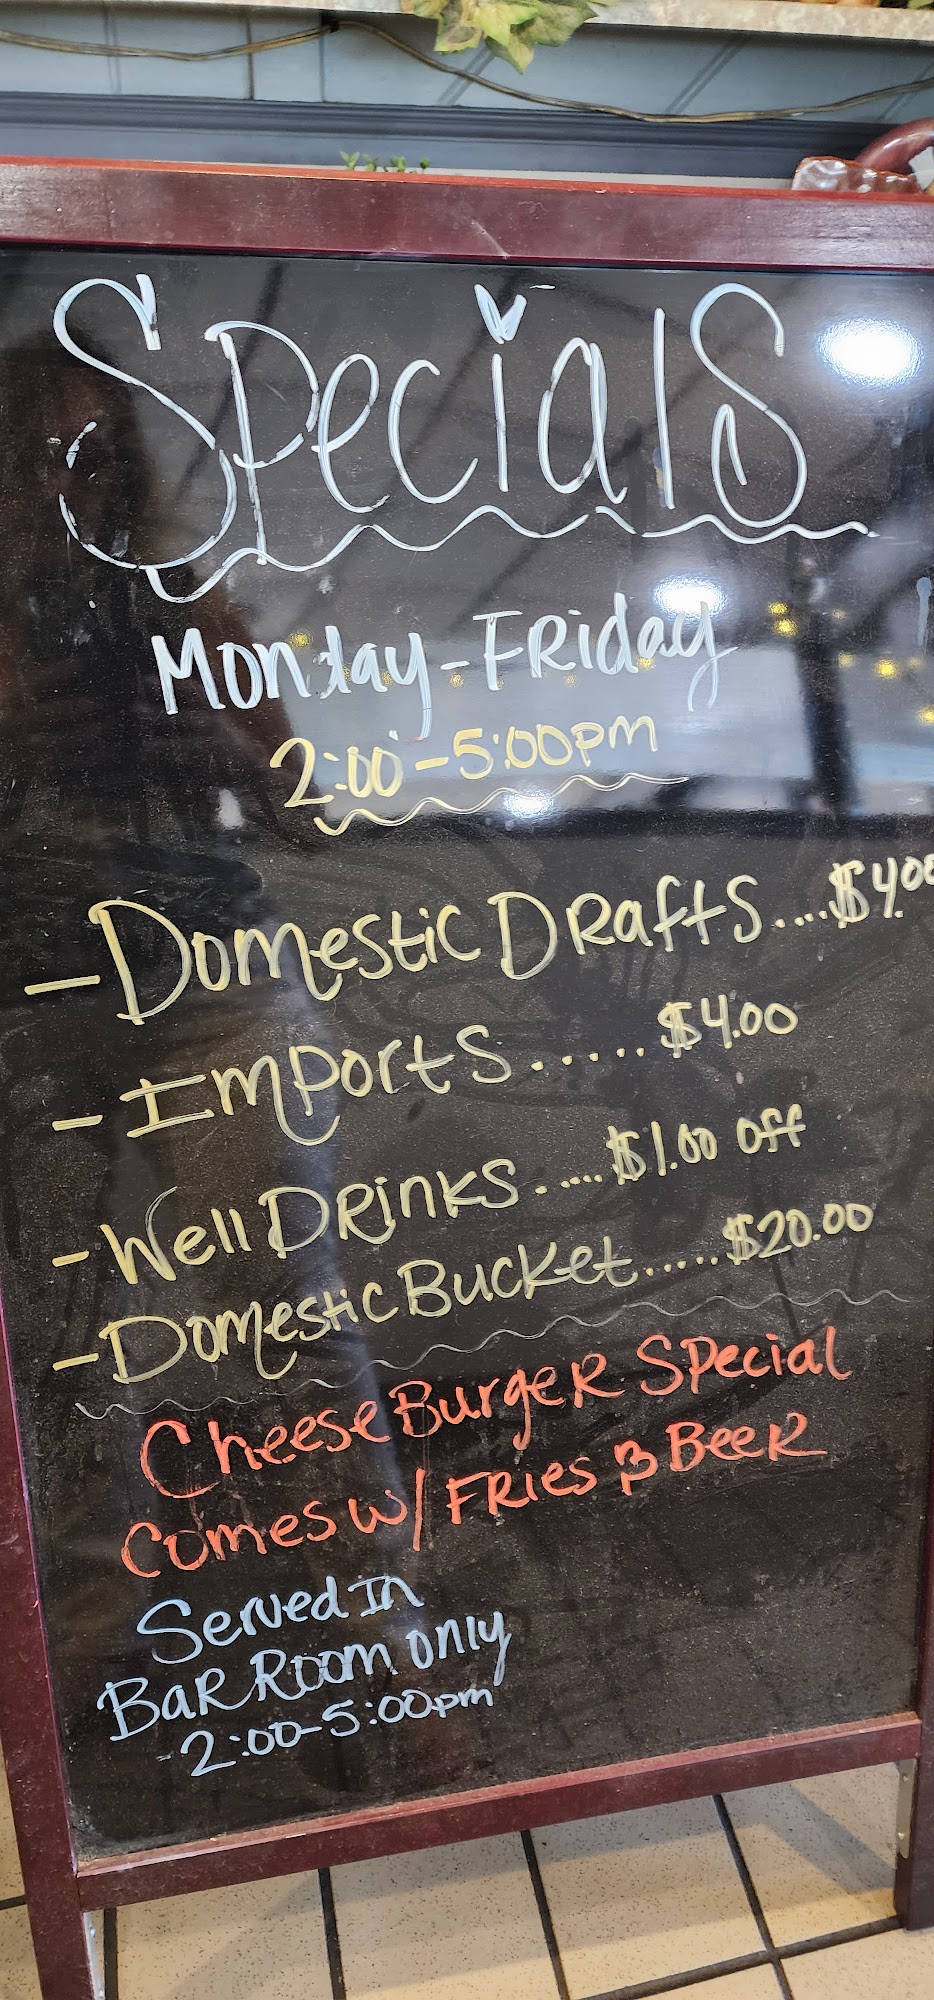 Specials
Monday-Friday
2:00-5:00pm
- Domestic Drafts....$4.00
- Imports......$4.00
- Well Drinks.....$1.00 off
- Domestic Bucket.....$20.00
Cheese Burger Special
Comes w/ Fries & Beer
Served In
Bar Room only
2:00-5:00pm